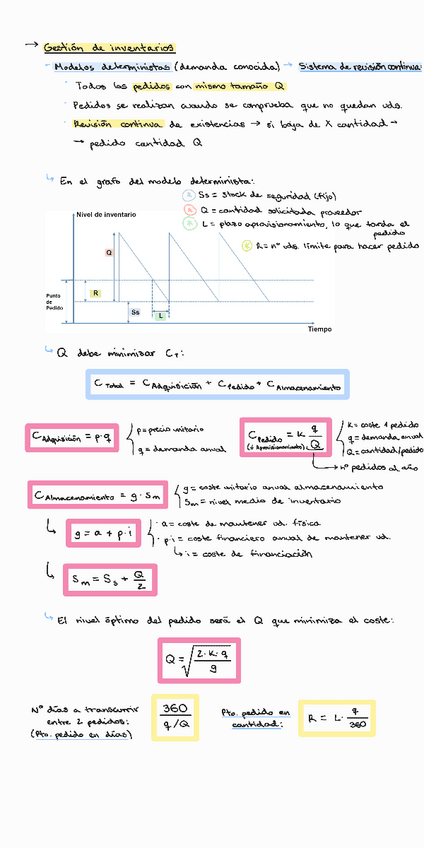 → Gestión de inventarios
- Modelos deterministas (demanda conocida) → Sistema de revisión continua:
· Todos los pedidos con mismo tamaño Q
· Pedidos se realizan cuando se comprueba que no quedan uds.
· Revisión continua de existencias → si baja de X cantidad →
→ pedido cantidad Q
↳ En el grafo del modelo determinista:
Ss = stock de seguridad (fijo)
Q = cantidad solicitada proveedor
L = plazo aprovisionamiento, lo que tarda el
pedido
R = nº uds. límite para hacer pedido
Nivel de inventario
Q
R
Punto
de
Pedido
Ss
L
Tiempo
↳ Q debe minimizar C_T:
C_Total = C_Adquisición + C_Pedido + C_Almacenamiento
C_Adquisición = p·q
p = precio unitario
q = demanda anual
C_Pedido = K q/Q
(ó Aprovisionamiento)
K = coste 1 pedido
q = demanda anual
Q = cantidad/pedido
→ nº pedidos al año
C_Almacenamiento = g · Sm
g = coste unitario anual almacenamiento
Sm = nivel medio de inventario
↳ g = a + p·i
· a = coste de mantener ud. física
· p·i = coste financiero anual de mantener ud.
↳ i = coste de financiación
↳ Sm = Ss + Q/2
↳ El nivel óptimo del pedido será el Q que minimiza el coste:
Q = √(2·K·q/g)
Nº días a transcurrir
entre 2 pedidos:
(Pto. pedido en días)
360
q/Q
Pto. pedido en
cantidad:
R = L · q/360